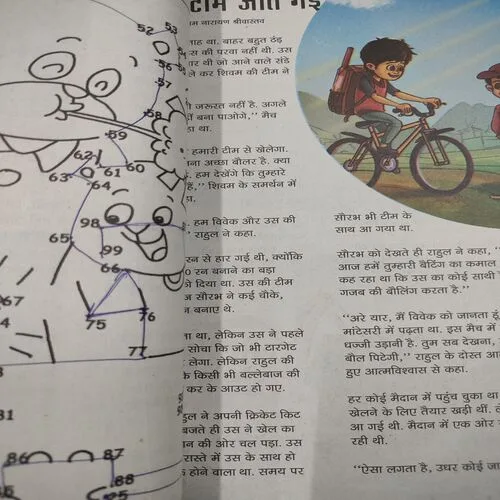 52 53
56
57
58
59
62
63 61 60
64
98
65 99
66
67
75 76
77
81
86 87
88
टीम जीत गई
नारायण श्रीवास्तव
था. बाहर बहुत ठंड
की परवा नहीं थी. उस
थी जो आने वाले संडे
कर शिवम की टीम ने
जरूरत नहीं है. अगले
बना पाओगे,” मैच
था.
हमारी टीम से खेलेगा.
अच्छा बौलर है. क्या
हम देखेंगे कि तुम्हारे
शिवम के समर्थन में
हम विवेक और उस की
” राहुल ने कहा.
से हार गई थी, क्योंकि
रन बनाने का बड़ा
दिया था. उस की टीम
सौरभ ने कई चौके,
बनाए थे.
था, लेकिन उस ने पहले
सोचा कि जो भी टारगेट
लेगा. लेकिन राहुल की
किसी भी बल्लेबाज की
कर के आउट हो गए.
ने अपनी क्रिकेट किट
बजते ही उस ने खेल का
की ओर चल पड़ा. उस
रास्ते में उस के साथ हो
होने वाला था. समय पर
सौरभ भी टीम के
साथ आ गया था.
सौरभ को देखते ही राहुल ने कहा, “
आज हमें तुम्हारी बैटिंग का कमाल
कह रहा था कि उस का कोई साथी
गजब की बौलिंग करता है.”
“अरे यार, मैं विवेक को जानता हूं
मांटेसरी में पढ़ता था. इस मैच में
धज्जी उड़ानी है. तुम सब देखना,
बौल पिटेगी,” राहुल के दोस्त
हुए आत्मविश्वास से कहा.
हर कोई मैदान में पहुंच चुका था
खेलने के लिए तैयार खड़ी थीं.
आ गई थी. मैदान में एक ओर
रही थी.
“ऐसा लगता है, उधर कोई